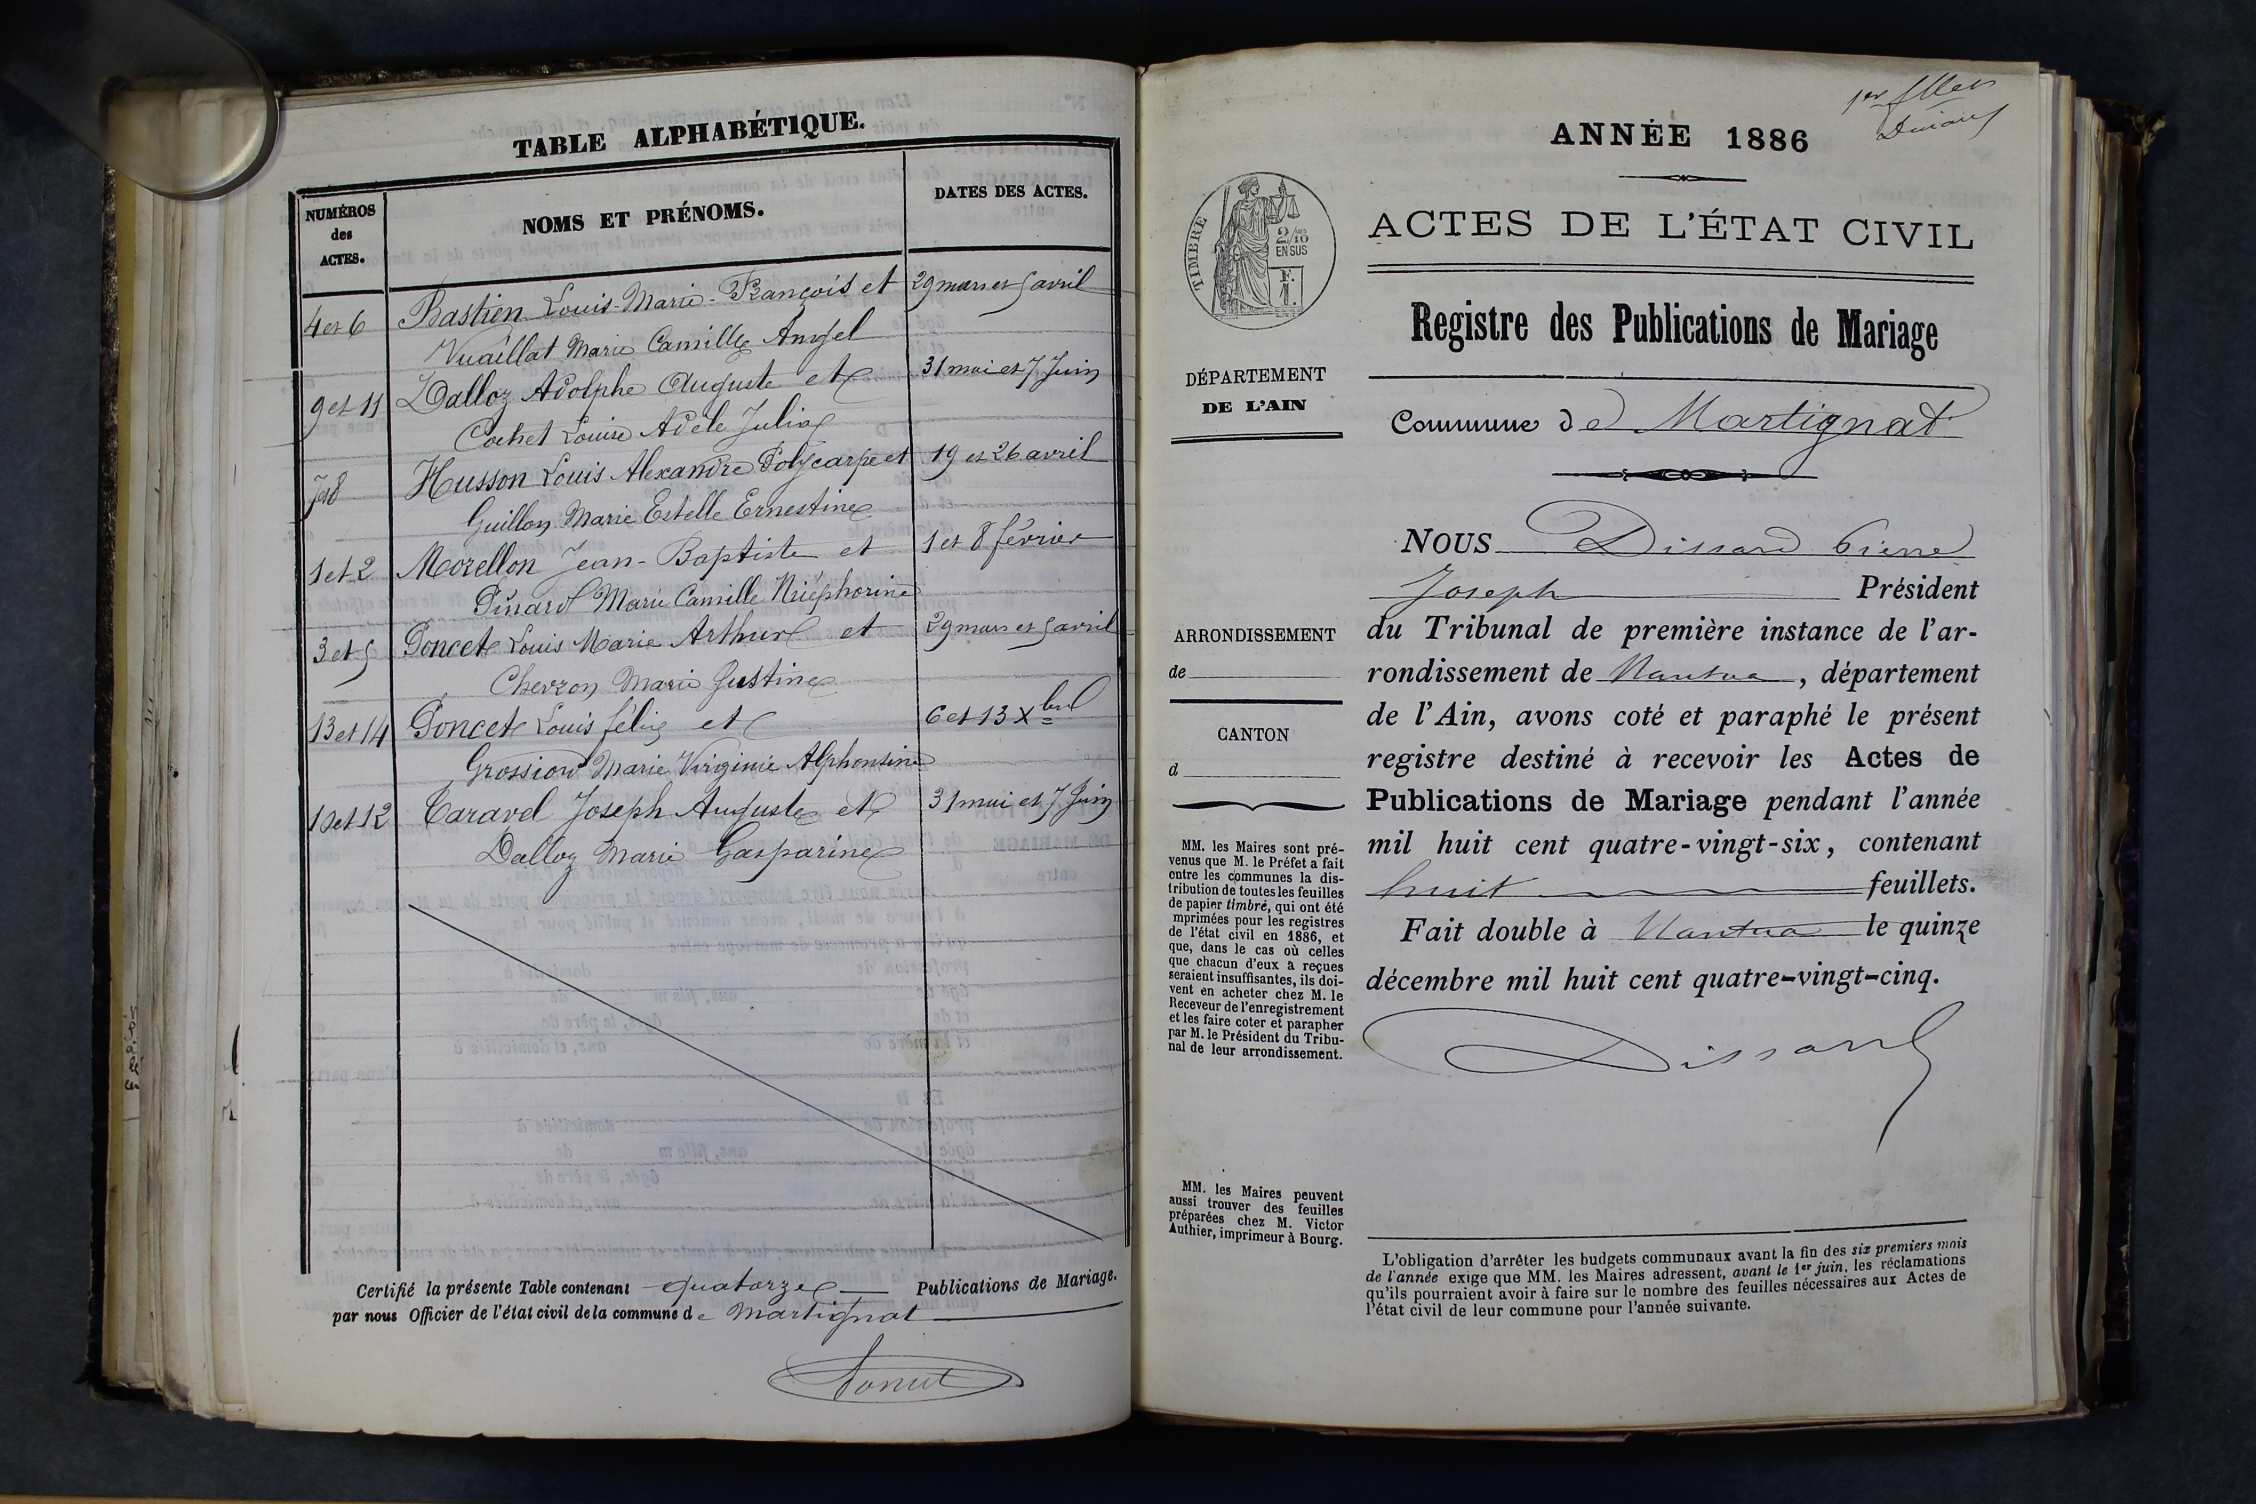 TABLE ALPHABÉTIQUE.
NUMÉROS
des
ACTES.
NOMS ET PRÉNOMS.
DATES DES ACTES.
4 et 6 Bastien Louis-Marie-François et 29 mars et 5 avril
Vuaillat Marie Camille Angel
9 et 11 Dalloz Adolphe Auguste et 31 mai et 7 Juin
Cochet Louise Adèle Julia
7 et 8 Husson Louis Alexandre Polycarpe et 19 et 26 avril
Guillon Marie Estelle Ernestine
1 et 2 Morellon Jean-Baptiste et 1 et 8 février
Pinard Marie Camille Nicéphorine
3 et 5 Poncet Louis Marie Arthur et 29 mars et 5 avril
Chevron Marie Justine
13 et 14 Poncet Louis félix et 6 et 13 Xbre
Grossiord Marie Virginie Alphonsine
10 et 12 Taravel Joseph Auguste et 31 mai et 7 Juin
Dalloz Marie Gasparine
Certifié la présente Table contenant quatorze Publications de Mariage.
par nous Officier de l'état civil de la commune de Martignat
1er
ANNÉE 1886
TIMBRE
2/10
EN SUS
F.
1.
ACTES DE L'ÉTAT CIVIL
Registre des Publications de Mariage
DÉPARTEMENT
DE L'AIN
Commune de Martignat
NOUS Dissard Pierre
Joseph Président
du Tribunal de première instance de l'ar-
rondissement de Nantua, département
de l'Ain, avons coté et paraphé le présent
registre destiné à recevoir les Actes de
Publications de Mariage pendant l'année
mil huit cent quatre-vingt-six, contenant
huit feuillets.
Fait double à Nantua le quinze
décembre mil huit cent quatre-vingt-cinq.
Dissard
ARRONDISSEMENT
de
CANTON
d
MM. les Maires sont pré-
venus que M. le Préfet a fait
entre les communes la dis-
tribution de toutes les feuilles
de papier timbré, qui ont été
mprimées pour les registres
de l'état civil en 1886, et
que, dans le cas où celles
que chacun d'eux a reçues
seraient insuffisantes, ils doi-
vent en acheter chez M. le
Receveur de l'enregistrement
et les faire coter et parapher
par M. le Président du Tribu-
nal de leur arrondissement.
MM. les Maires peuvent
aussi trouver des feuilles
préparées chez M. Victor
Authier, imprimeur à Bourg.
L'obligation d'arrêter les budgets communaux avant la fin des six premiers mois
de l'année exige que MM. les Maires adressent, avant le 1er juin, les réclamations
qu'ils pourraient avoir à faire sur le nombre des feuilles nécessaires aux Actes de
l'état civil de leur commune pour l'année suivante.